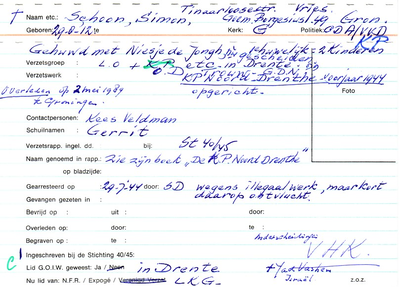 Naam etc.: Schoon, Simon, Gron.
Geboren: 29-8-12, te Kerk: G Politiek: CDA/VVD
Gehuwd met Niesje de Jongh, huwelijk = 2 Kinderen
Verzetsgroep : L.O + K.P. etc. in Drente.
Verzetswerk : K.P Noord-Drenthe voorjaar 1944
Overleden op 2 mei 1989 opgericht. Foto
te Groningen.
Contactpersonen: Kees Veldman
Schuilnaam : Gerrit
Verzetsrapp. ingel. dd. bij: St 40/45
Naam genoemd in rapp.: Zie zijn boek "De K.P. Noord Drenthe"
op bladzijde:
Gearresteerd op 29-7-44 door: SD wegens illegaal werk, maar kort
Gevangen gezeten in : daarop ontvlucht.
Bevrijd op : uit : door:
Overleden op: te : door:
Begraven op : te : Onderscheidingen
Ingeschreven bij de Stichting 40/45: V.H.K.
Lid G.O.I.W. geweest: Ja / Neen in Drente + Yad Vashem
Nu lid van: N.F.R. / Expogé / L.K.G. Israël z.o.z.